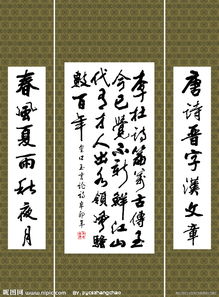 唐诗晋字漢文章
李杜诗篇萬古傳至
今已覺不新鲜江山
代有才人出各领风骚
数百年
春風夏雨秋夜月
昵图网 www.nipic.com